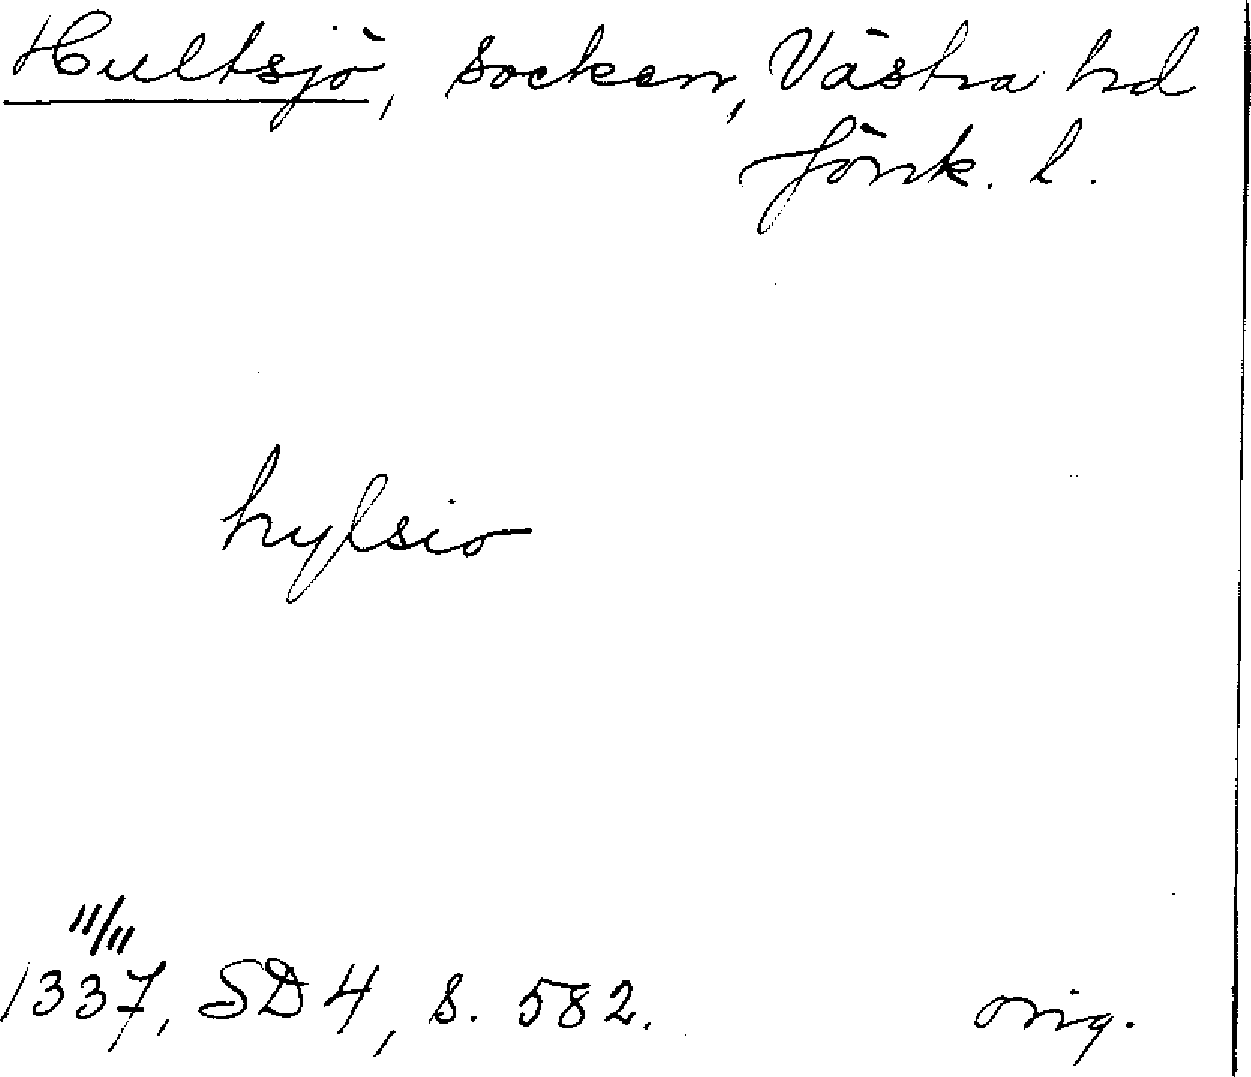 Hultsjö, socken, Västra hd
Jönk. l.
hylsio
11/11
1337, SD 4, s. 582.
orig.